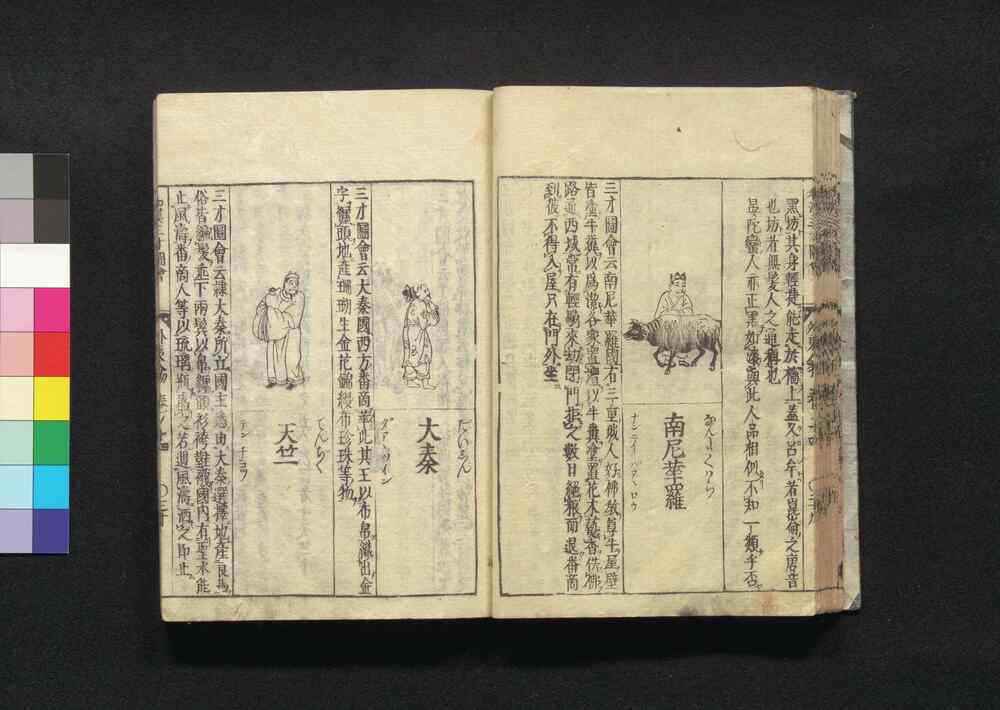 黒坊其身輕捷能走於檣上蓋又呂牟者崑侖之唐音
也坊者無髮人之通稱也
昆陀蠻人亦正黒如漆與此人品相似不知一類乎否
なんじくはら
南尼華羅
ナンニイハアヽロウ
三才圖會云南尼華羅國有三重城人好佛教尊牛屋壁
皆塗牛糞以為潔各家置壇以牛糞塗置花木焚香供佛
路通西域常有輕騎來劫閉門拒之數日絕糧而退番商
到彼不得入屋只在門外坐
たいしん
大秦
ダアツイン
三才圖會云大秦國西方番商萃此其王以布帛織出金
字纏頭地產珊瑚生金花錦縵布珍珠等物
てんぢく
天竺
テンチヨツ
三才圖會云隷大秦所立國主悉由大秦選擇地產良馬
俗皆辮髮垂下兩鬢以帛纏頭衫袴 國内有聖水能
止風濤番商人等以琉璃瓶盛之若遇風濤洒之即止